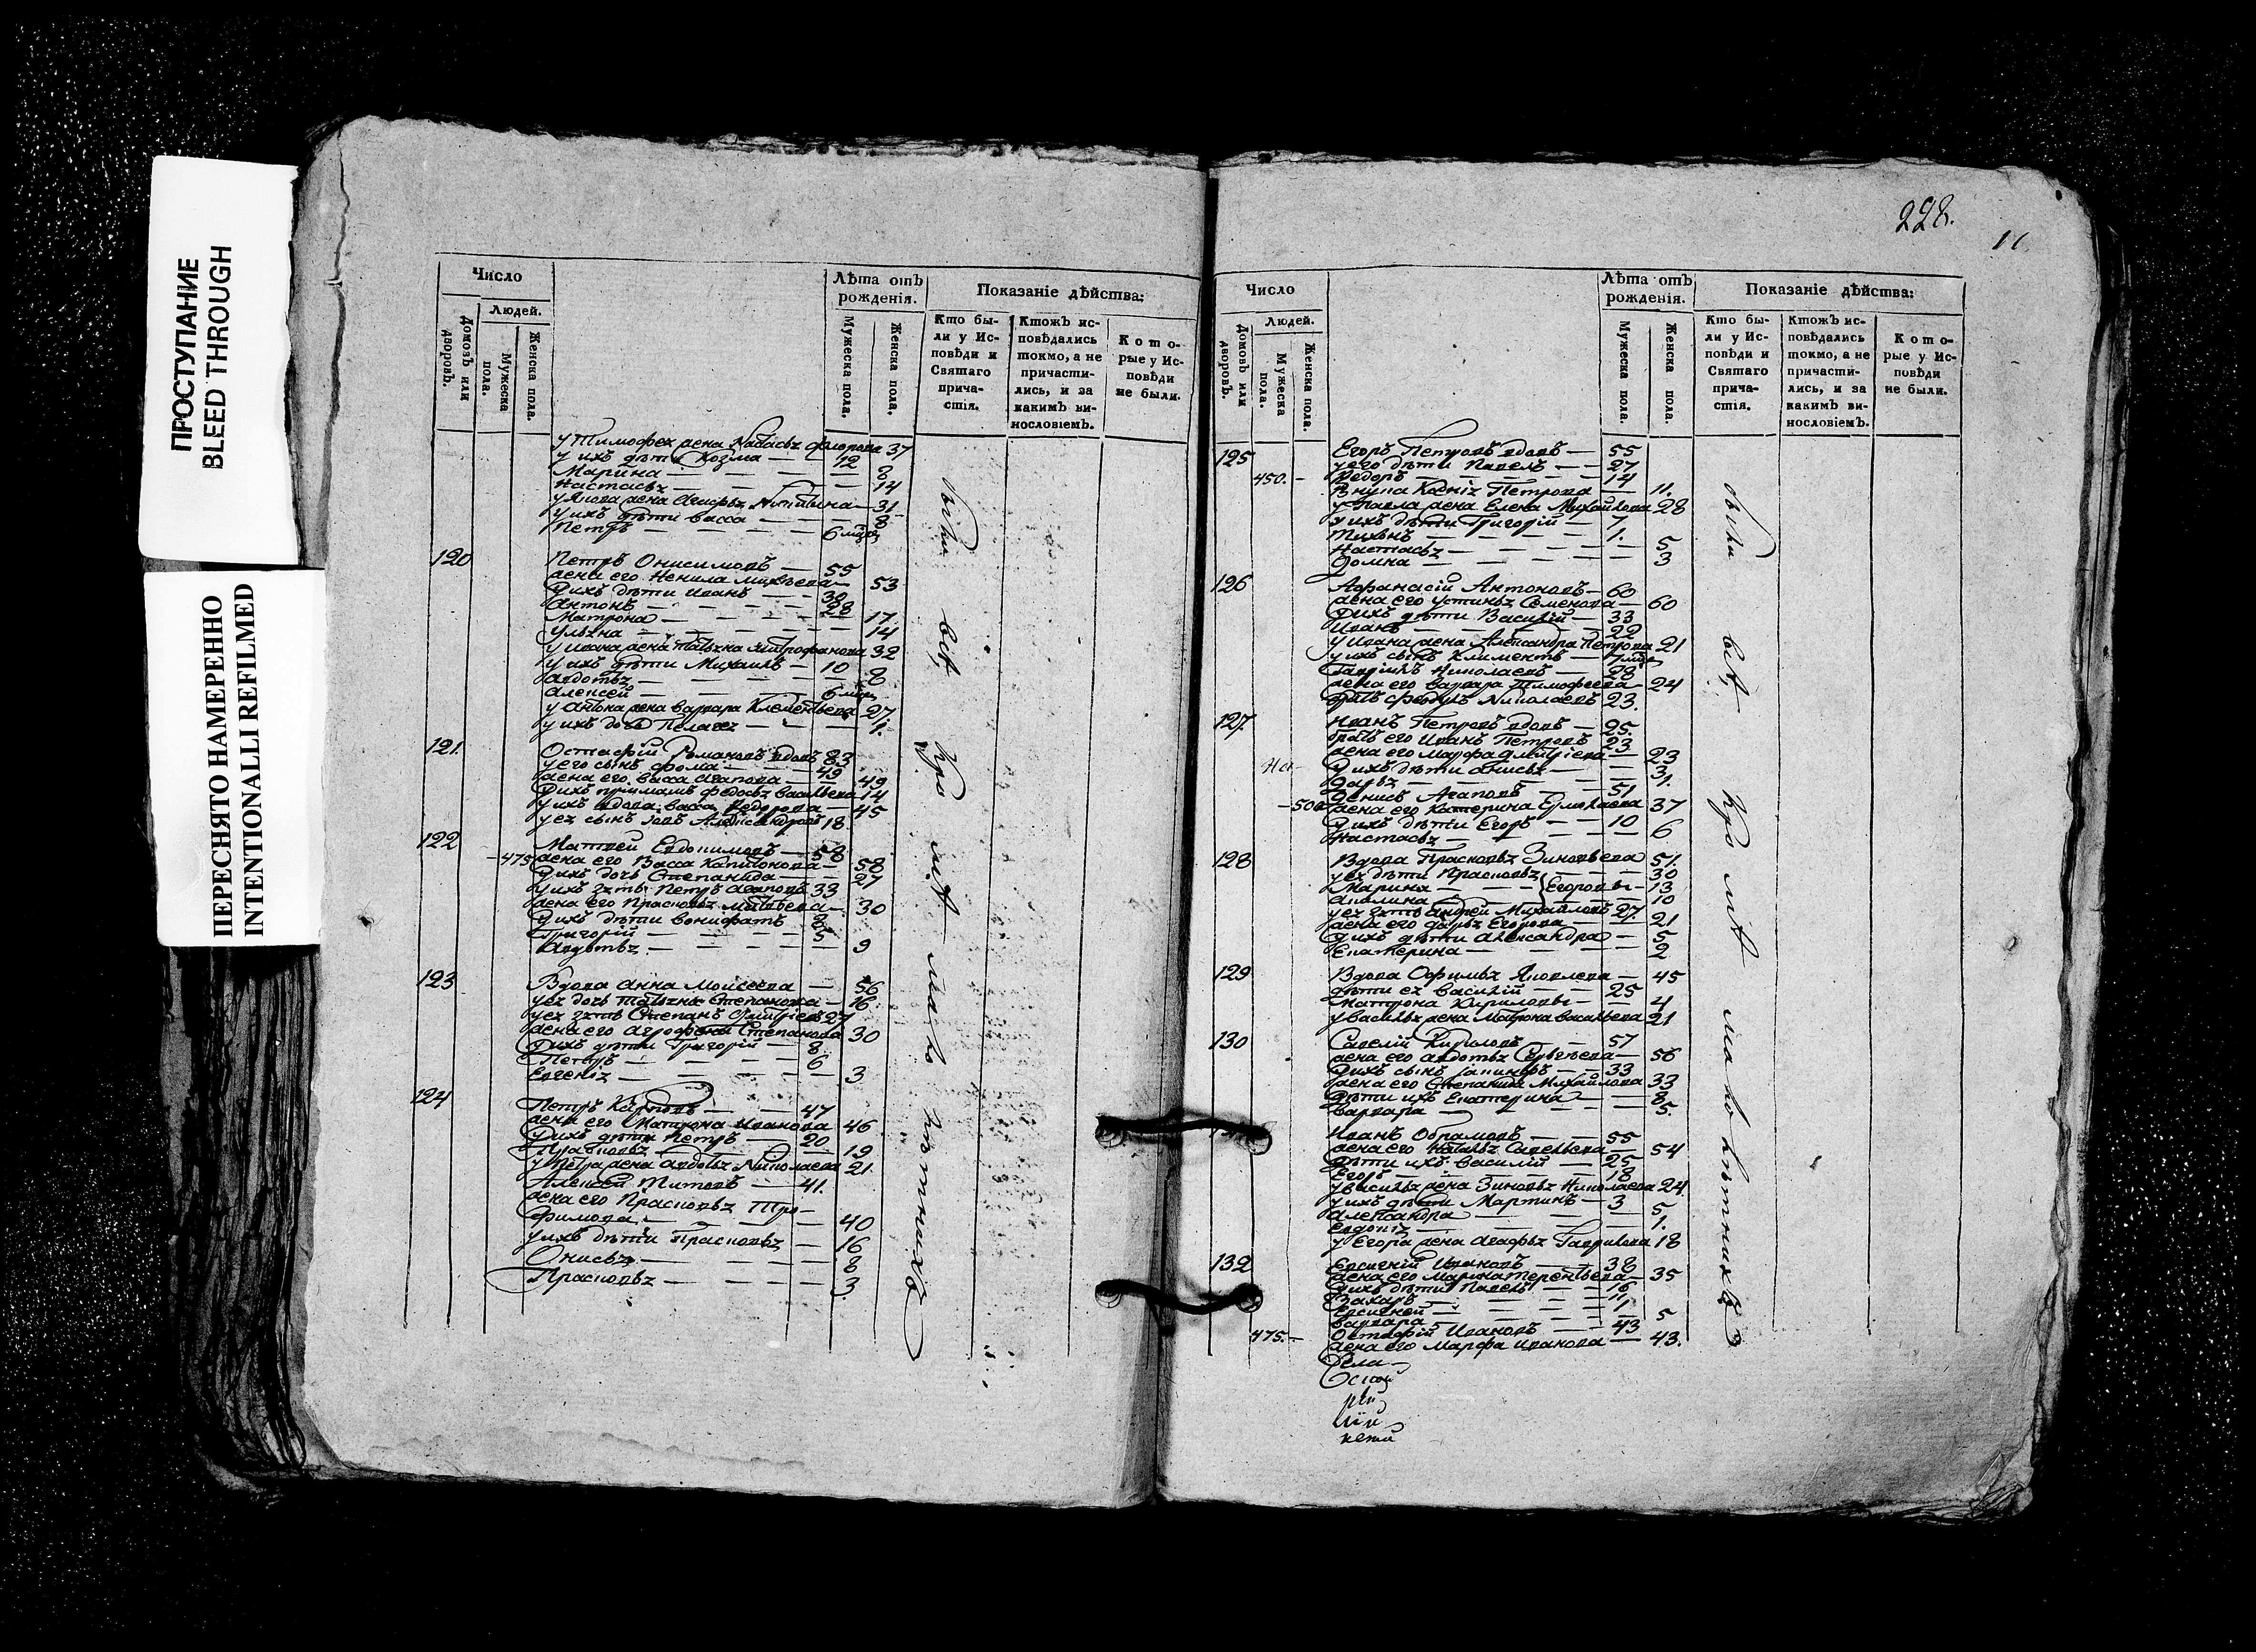 ПРОСТУПАНИЕ
BLEED THROUGH
ПЕРЕСНЯТО НАМЕРЕННО
INTENTIONALLI REFILMED
Число
Людей.
Домовъ или дворовъ.
Мужеска пола.
Женска пола.
Лѣта отъ рожденія.
Мужеска пола.
Женска пола.
Показаніе дѣйства:
Кто были у Исповѣди и Святаго причастія.
Ктожъ исповѣдались токмо, а не причастились, и за какимъ винословіемъ.
Которые у Исповѣди не были.
у ихъ дѣти Козма — 12
Марина — 8
Настасья — 14
у ихъ дѣти васса — 8
Петръ — 6 мцъ
120 Петръ Онисимовъ — 55
жена его Ненила — 53
у ихъ дѣти Иванъ — 30
Антонъ — 28
Матрона — 17
Ульяна — 14
у ивана жена татьяна митрофанова 32
у ихъ дѣти Михаилъ — 10
авдотья — 8
Алексей — 6 мцъ
у антона жена варвара Клементьева 27
у ихъ дочь Пелагея — 1.
121. Остафій Романовъ вдовъ 83
у его сынъ фома — 49
жена его васса агапова — 49
у ихъ федосья васильева 14
у ихъ вдова васса федорова — 45
у ея сынъ Александровъ 18
122 Матвей Евдокимовъ — 58
475 жена его Васса Капитонова — 58
у ихъ дочь Степанида — 27
у ихъ зять Петръ агаповъ 33
жена его Прасковья матвеева — 30
у ихъ дѣти вонифатъ — 8
Григорій — 5
Авдотья — 9
123 Вдова анна Моисеева — 56
у ея дочь татьяна Степанова — 16
у ея зять Степанъ Дмитріевъ 27
жена его Степанова 30
у ихъ дѣти Григорій — 8
Петръ — 6
Евгенія — 3
124 Петръ Карповъ — 47
жена его Матрона Иванова 46
у ихъ дѣти Петръ — 20
Прасковья — 19
у Петра жена авдотья Николаева 21
Алексей Титовъ — 41.
жена его Прасковья Тро-
фимова — 40
у ихъ дѣти Прасковья — 16
Онисья — 8
Прасковья — 3
были всѣ
228.
Число
Людей.
Домовъ или дворовъ.
Мужеска пола.
Женска пола.
Лѣта отъ рожденія.
Мужеска пола.
Женска пола.
Показаніе дѣйства:
Кто были у Исповѣди и Святаго причастія.
Ктожъ исповѣдались токмо, а не причастились, и за какимъ винословіемъ.
Которые у Исповѣди не были.
125 Егоръ Петровъ вдовъ — 55
у его дѣти Павелъ — 27
450. Федоръ — 14
Внука Ксенія Петрова — 11.
у Павла жена Елена Михайлова 28
у ихъ дѣти Григорій — 7
Тихонъ — 1.
Настасья — 5
Домна — 3
126 Афанасій Антоновъ — 60
жена его устинья Семенова — 60
у ихъ дѣти Василій — 33
Иванъ — 22
у ивана жена Александра Петрова 21
у ихъ сынъ Климентъ — 7 мцъ
Гаврилъ Николаевъ — 28
жена его варвара Тимофеева — 24
братъ Николаевъ 23.
127. Иванъ Петровъ вдовъ — 25.
братъ его Иванъ Петровъ 23
жена его Марфа Дмитріева — 23
у ихъ дѣти анисья — 3
Дарья — 1.
Денисъ Агаповъ — 51
500 жена его Катерина Ермолаева 37
у ихъ дѣти Егоръ — 10
Настасья — 6
128 Вдова Прасковья Зиновьева 51.
у ея дѣти Прасковья — 30
Марина — Егоровы — 13
Акилина — 10
у ея зять андрей Михайловъ 27.
жена его дарья Егорова — 21
у ихъ дѣти александра — 5
Екатерина — 2
129 Вдова Офимья Яковлева — 45
дѣти ея василій — 25
Матрона Кириловы — 4
у василья жена Матрона васильева 21
130 Савелій Кириловъ — 57
жена его авдотья — 56
у ихъ сынъ — 33
жена его Степанида Михайлова 33
дѣти ихъ Екатерина — 8
варвара — 5.
Иванъ Обрамовъ — 55
жена его Наталья Савельева — 54
дѣти ихъ василій — 25
Егоръ — 18
у василья жена Зиновья Николаева 24.
у ихъ дѣти Мартинъ — 3
александра — 5
Евдокія — 1.
у Егора жена агафья Гаврилова 18
132 Евсигній Ивановъ — 38
жена его марина терентьева — 35
у ихъ дѣти Павелъ — 16
Захаръ — 11
Евсигней — 1
варвара — 5
475. Остафій Ивановъ — 43
жена его Марфа иванова — 43.
были всѣ